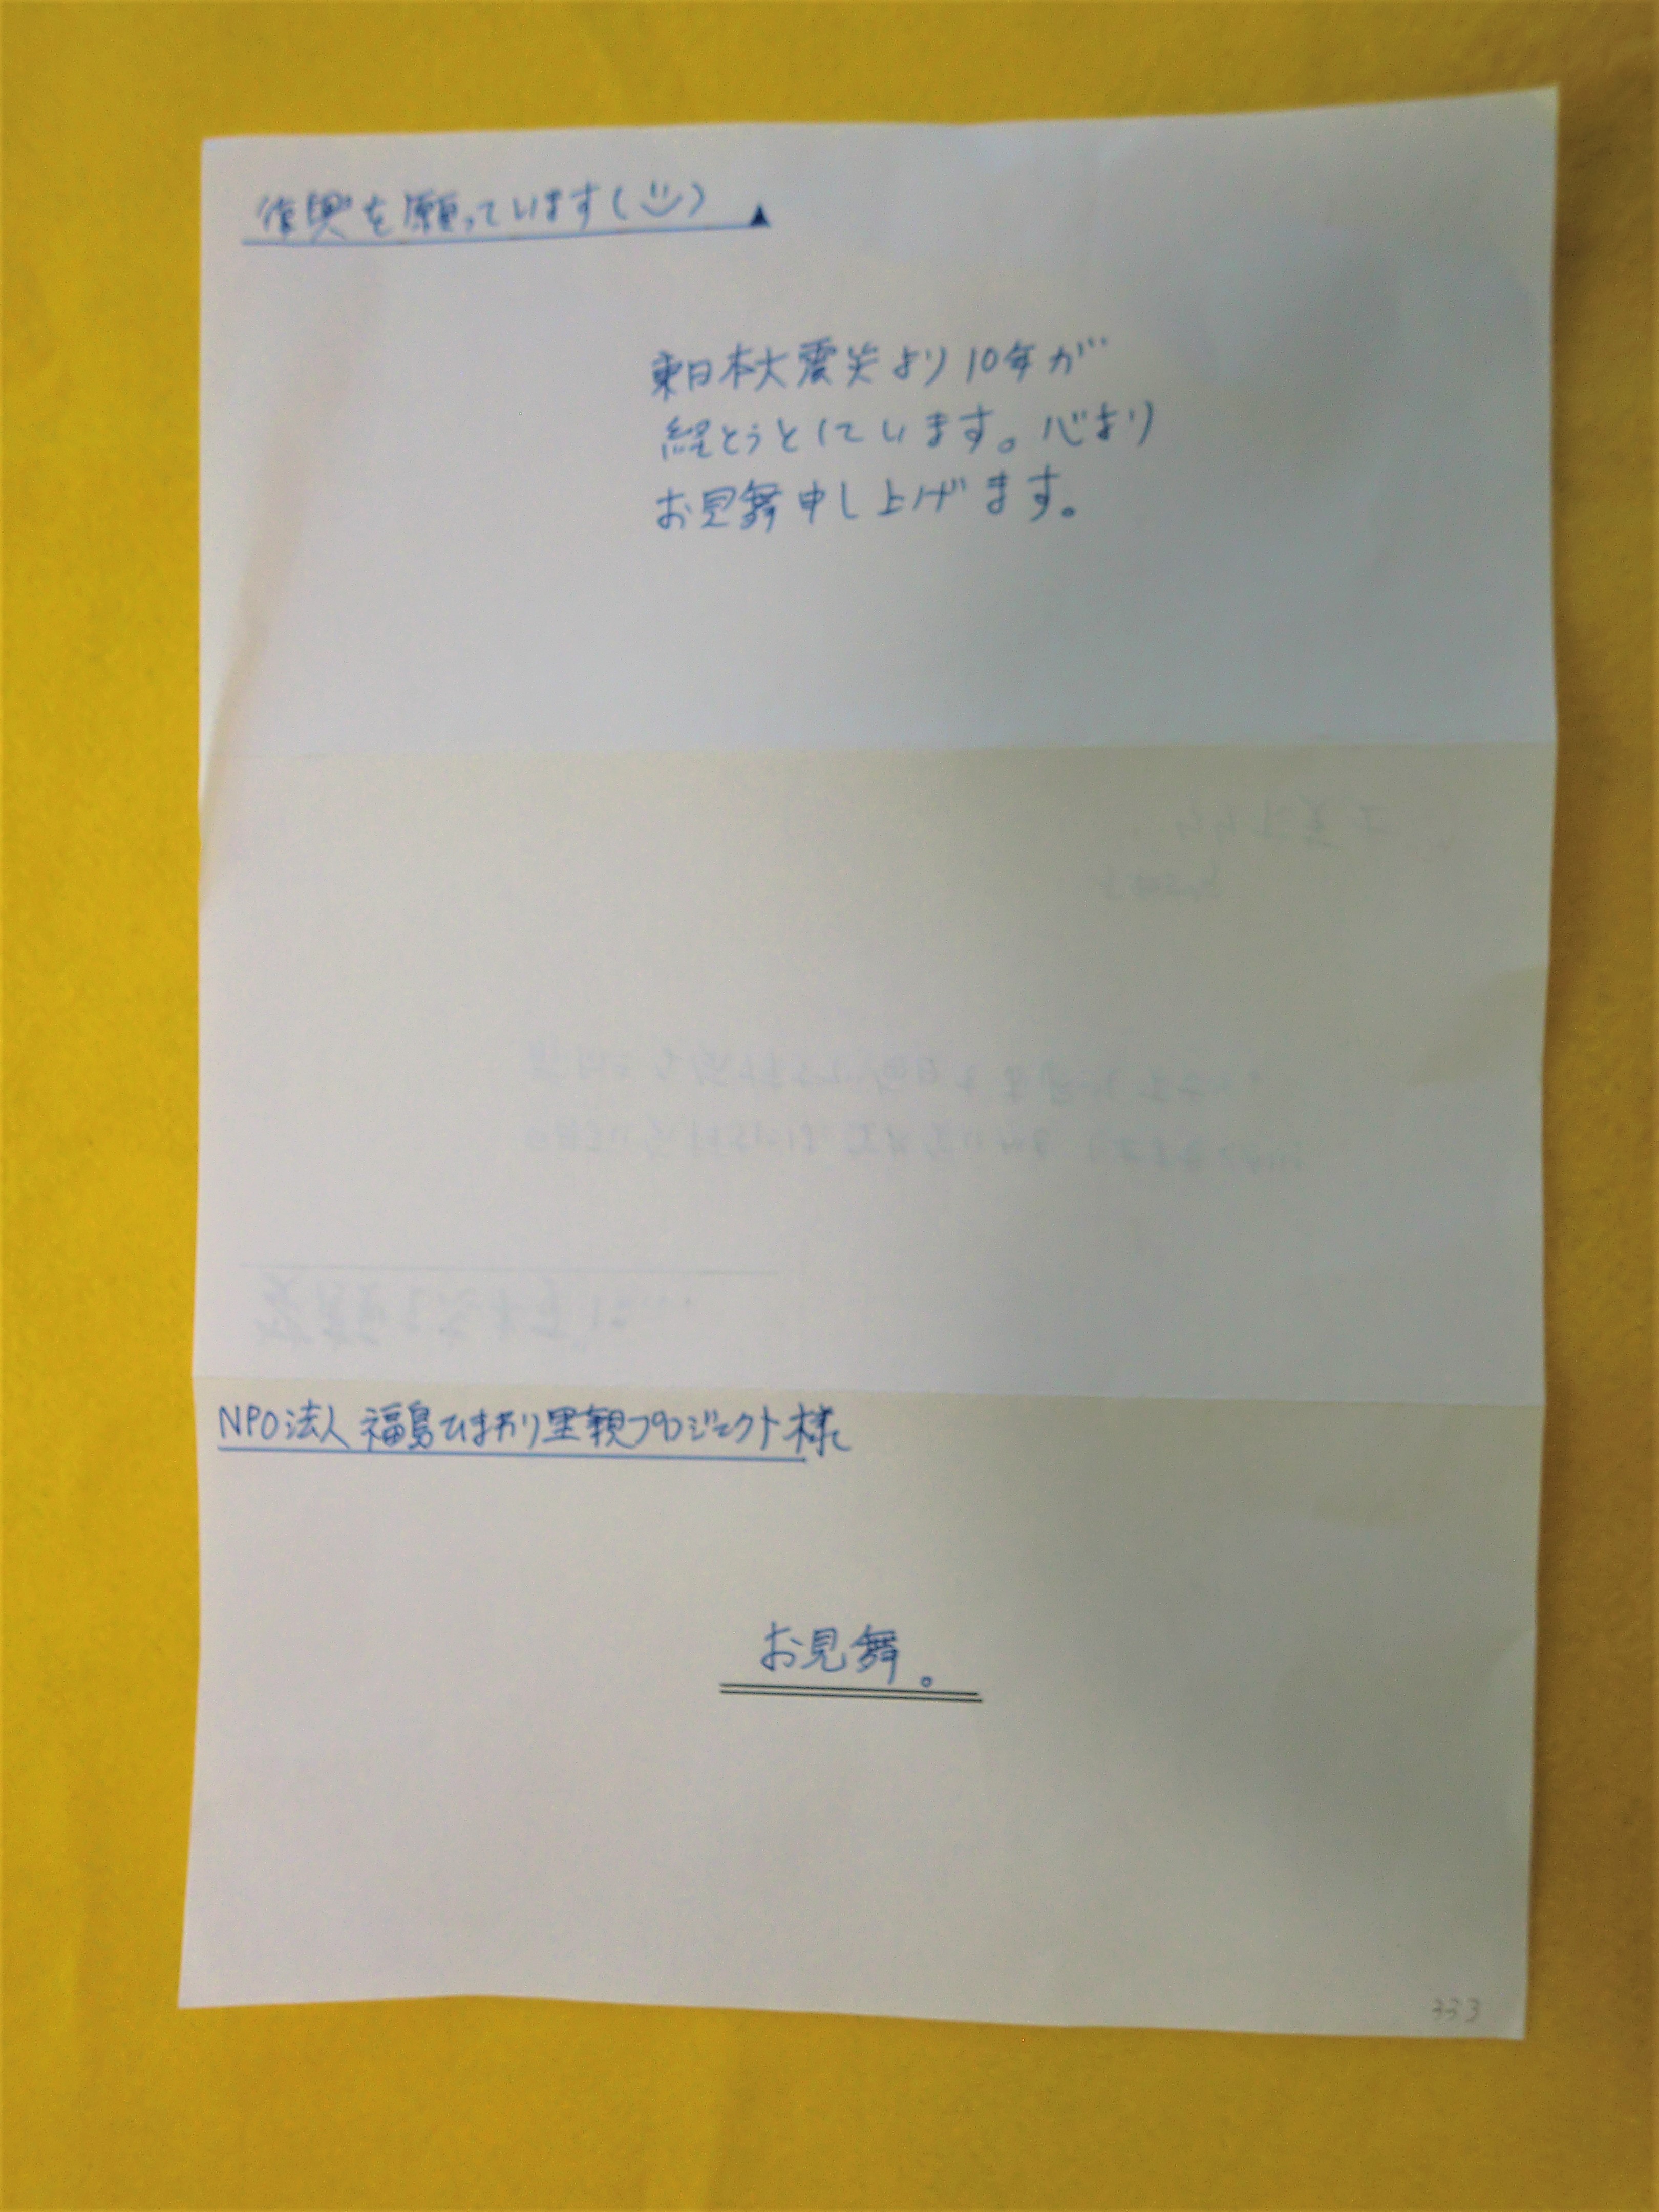 復興を願っています(ツ)
東日本大震災より10年が
経とうとしています。心より
お見舞申し上げます。
NPO法人 福島ひまわり里親プロジェクト様
お見舞。
333